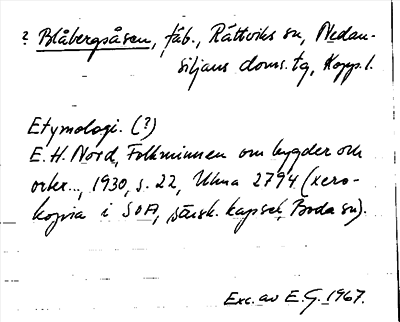 ? Blåbergsåsen, fäb., Rättviks sn, Nedan-
siljans doms. tg, Kopp. l.
Etymologi. (?)
E. H. Nord, Folkminnen om bygder och
orter..., 1930, s. 22, Ulma 2794 (xero-
kopia i SOA, särsk. kapsel, Boda sn).
Exc. av E. G. 1967.